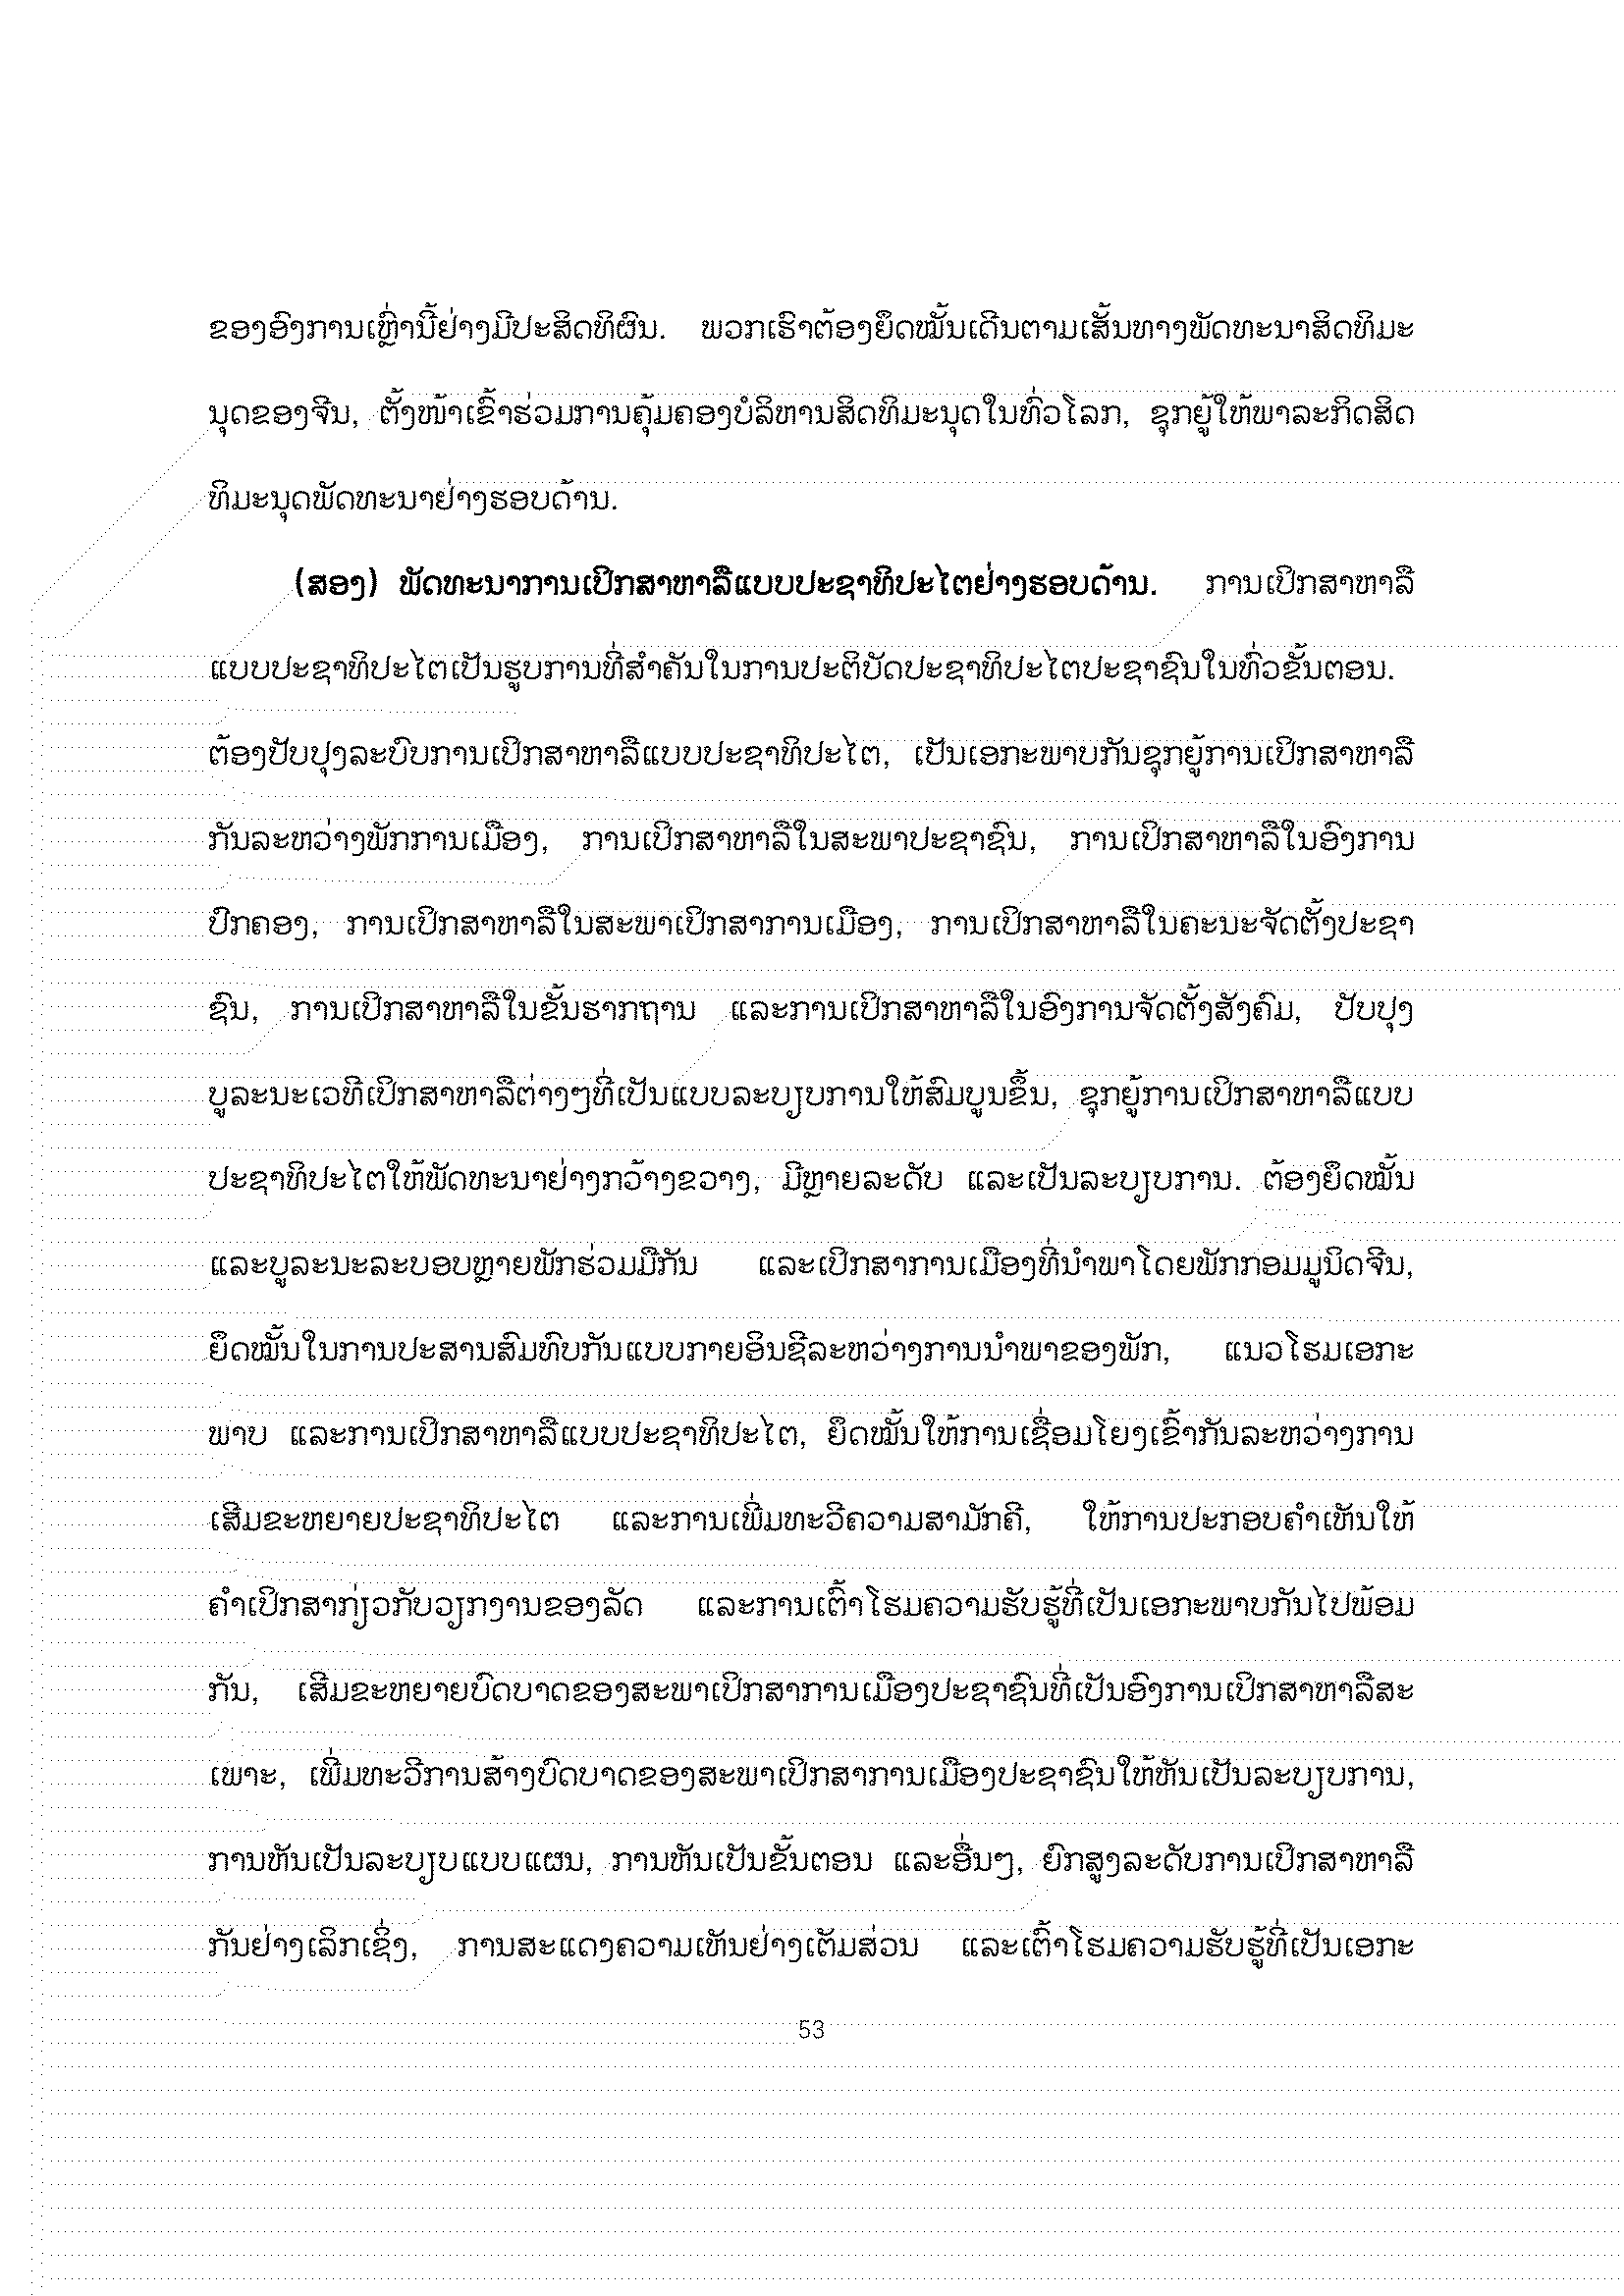 ຂອງອົງການເຫຼົ່ານີ້ຢ່າງມີປະສິດທິຜົນ. ພວກເຮົາຕ້ອງຍຶດໝັ້ນເດີນຕາມເສັ້ນທາງພັດທະນາສິດທິມະ
ນຸດຂອງຈີນ, ຕັ້ງໜ້າເຂົ້າຮ່ວມການຄຸ້ມຄອງບໍລິຫານສິດທິມະນຸດໃນທົ່ວໂລກ, ຊຸກຍູ້ໃຫ້ພາລະກິດສິດ
ທິມະນຸດພັດທະນາຢ່າງຮອບດ້ານ.
(ສອງ) ພັດທະນາການເປິກສາຫາລືແບບປະຊາທິປະໄຕຢ່າງຮອບດ້ານ. ການເປິກສາຫາລື
ແບບປະຊາທິປະໄຕເປັນຮູບການທີ່ສຳຄັນໃນການປະຕິບັດປະຊາທິປະໄຕປະຊາຊົນໃນທົ່ວຂັ້ນຕອນ.
ຕ້ອງປັບປຸງລະບົບການເປິກສາຫາລືແບບປະຊາທິປະໄຕ, ເປັນເອກະພາບກັນຊຸກຍູ້ການເປິກສາຫາລື
ກັນລະຫວ່າງພັກການເມືອງ, ການເປິກສາຫາລືໃນສະພາປະຊາຊົນ, ການເປິກສາຫາລືໃນອົງການ
ປົກຄອງ, ການເປິກສາຫາລືໃນສະພາເປິກສາການເມືອງ, ການເປິກສາຫາລືໃນຄະນະຈັດຕັ້ງປະຊາ
ຊົນ, ການເປິກສາຫາລືໃນຂັ້ນຮາກຖານ ແລະການເປິກສາຫາລືໃນອົງການຈັດຕັ້ງສັງຄົມ, ປັບປຸງ
ບູລະນະເວທີເປິກສາຫາລືຕ່າງໆທີ່ເປັນແບບລະບຽບການໃຫ້ສົມບູນຂຶ້ນ, ຊຸກຍູ້ການເປິກສາຫາລືແບບ
ປະຊາທິປະໄຕໃຫ້ພັດທະນາຢ່າງກວ້າງຂວາງ, ມີຫຼາຍລະດັບ ແລະເປັນລະບຽບການ. ຕ້ອງຍຶດໝັ້ນ
ແລະບູລະນະລະບອບຫຼາຍພັກຮ່ວມມືກັນ ແລະເປິກສາການເມືອງທີ່ນຳພາໂດຍພັກກອມມູນິດຈີນ,
ຍຶດໝັ້ນໃນການປະສານສົມທົບກັນແບບກາຍອິນຊີລະຫວ່າງການນຳພາຂອງພັກ, ແນວໂຮມເອກະ
ພາບ ແລະການເປິກສາຫາລືແບບປະຊາທິປະໄຕ, ຍຶດໝັ້ນໃຫ້ການເຊື່ອມໂຍງເຂົ້າກັນລະຫວ່າງການ
ເສີມຂະຫຍາຍປະຊາທິປະໄຕ ແລະການເພີ່ມທະວີຄວາມສາມັກຄີ, ໃຫ້ການປະກອບຄຳເຫັນໃຫ້
ຄຳເປິກສາກ່ຽວກັບວຽກງານຂອງລັດ ແລະການເຕົ້າໂຮມຄວາມຮັບຮູ້ທີ່ເປັນເອກະພາບກັນໄປພ້ອມ
ກັນ, ເສີມຂະຫຍາຍບົດບາດຂອງສະພາເປິກສາການເມືອງປະຊາຊົນທີ່ເປັນອົງການເປິກສາຫາລືສະ
ເພາະ, ເພີ່ມທະວີການສ້າງບົດບາດຂອງສະພາເປິກສາການເມືອງປະຊາຊົນໃຫ້ຫັນເປັນລະບຽບການ,
ການຫັນເປັນລະບຽບແບບແຜນ, ການຫັນເປັນຂັ້ນຕອນ ແລະອື່ນໆ, ຍົກສູງລະດັບການເປິກສາຫາລື
ກັນຢ່າງເລິກເຊິ່ງ, ການສະແດງຄວາມເຫັນຢ່າງເຕັມສ່ວນ ແລະເຕົ້າໂຮມຄວາມຮັບຮູ້ທີ່ເປັນເອກະ
53